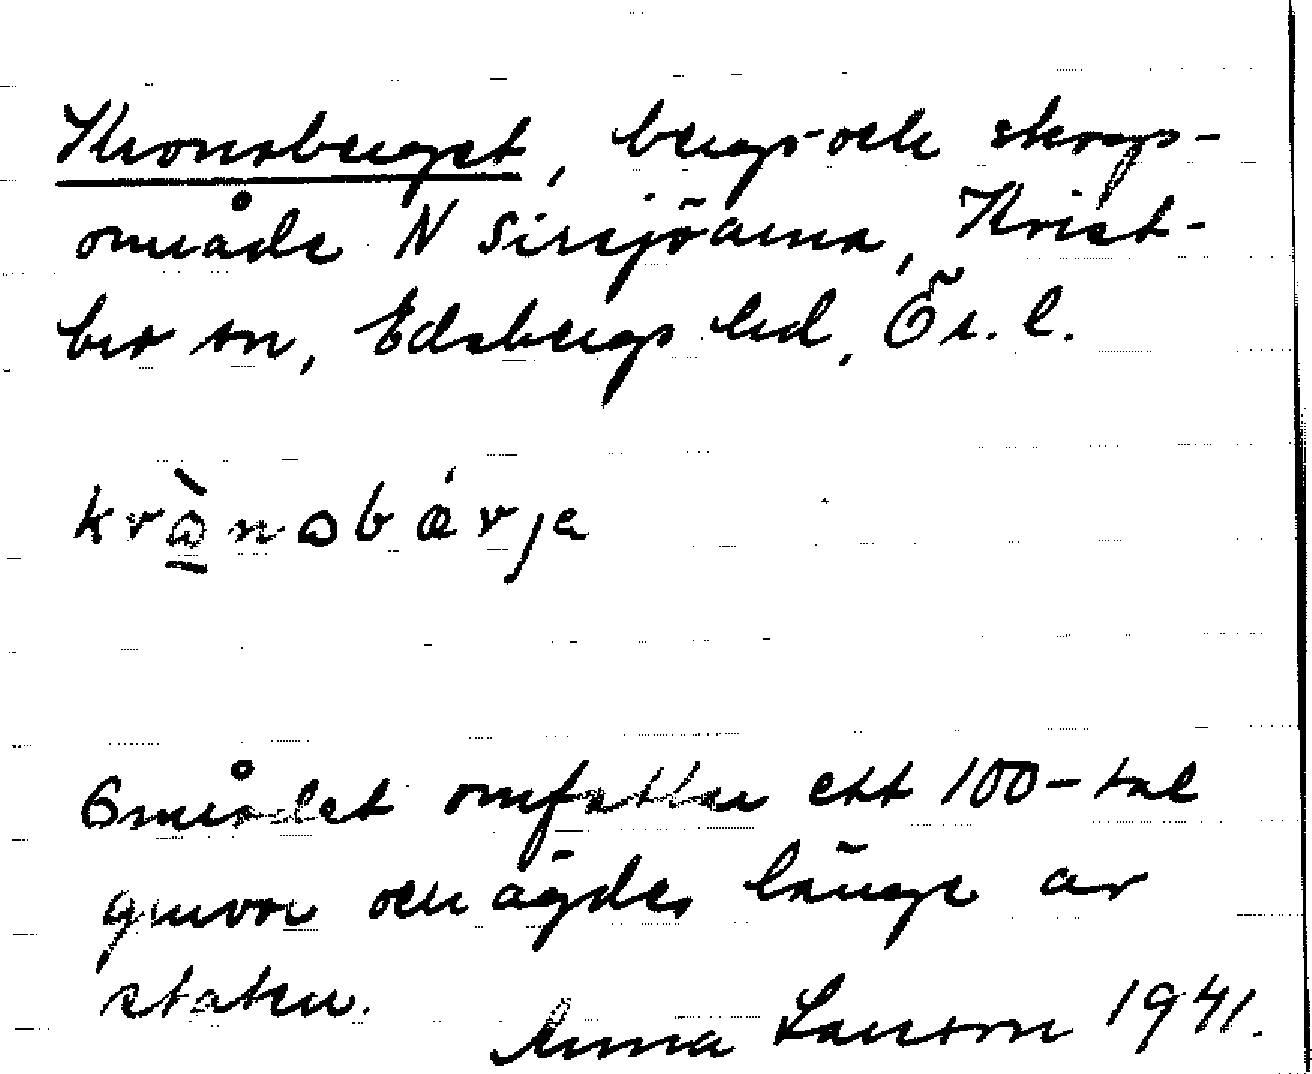 Kronoberget, bergs- och skogs-
område N Sirsjöarna, Kvist-
bro sn, Edsbergs hd, Ör. l.
krònabǽrje
Området omfattar ett 100-tal
gruvor och ägdes länge av
staten.
Anna Larsson 1941.